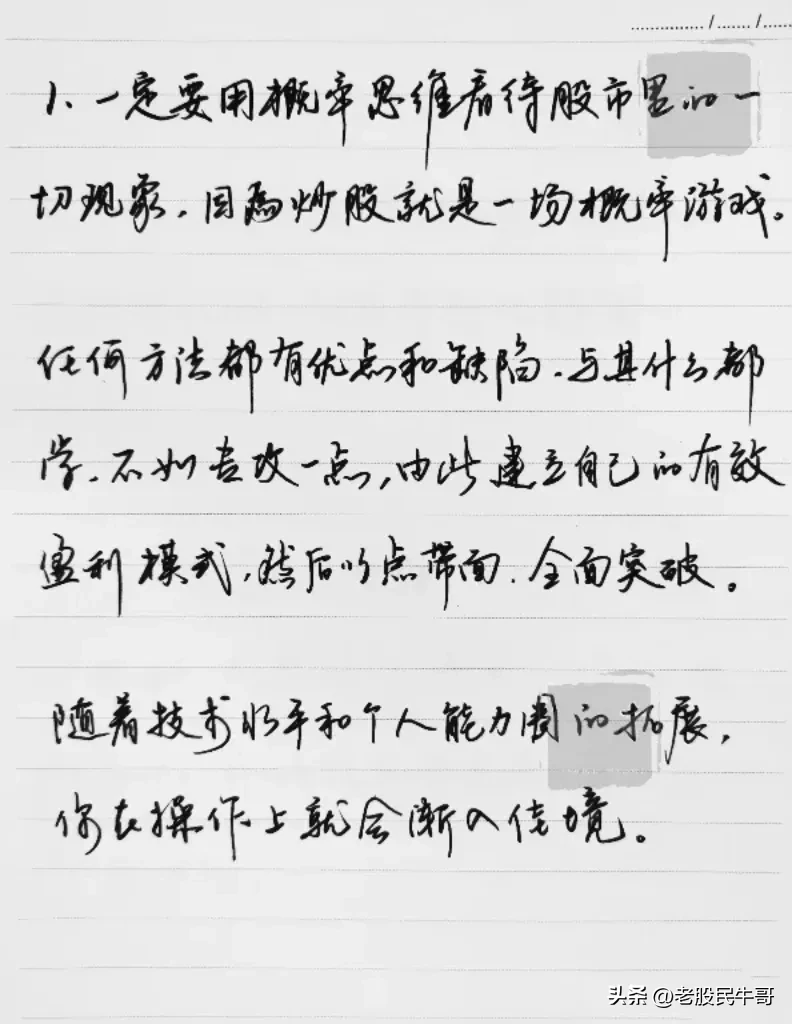 1、一定要用概率思维看待股市里的一
切现象，因为炒股就是一场概率游戏。
任何方法都有优点和缺陷，与其什么都
学，不如专攻一点，由此建立自己的有效
盈利模式，然后以点带面，全面突破。
随着技术水平和个人能力圈的拓展，
你在操作上就会渐入佳境。
头条 @老股民牛哥